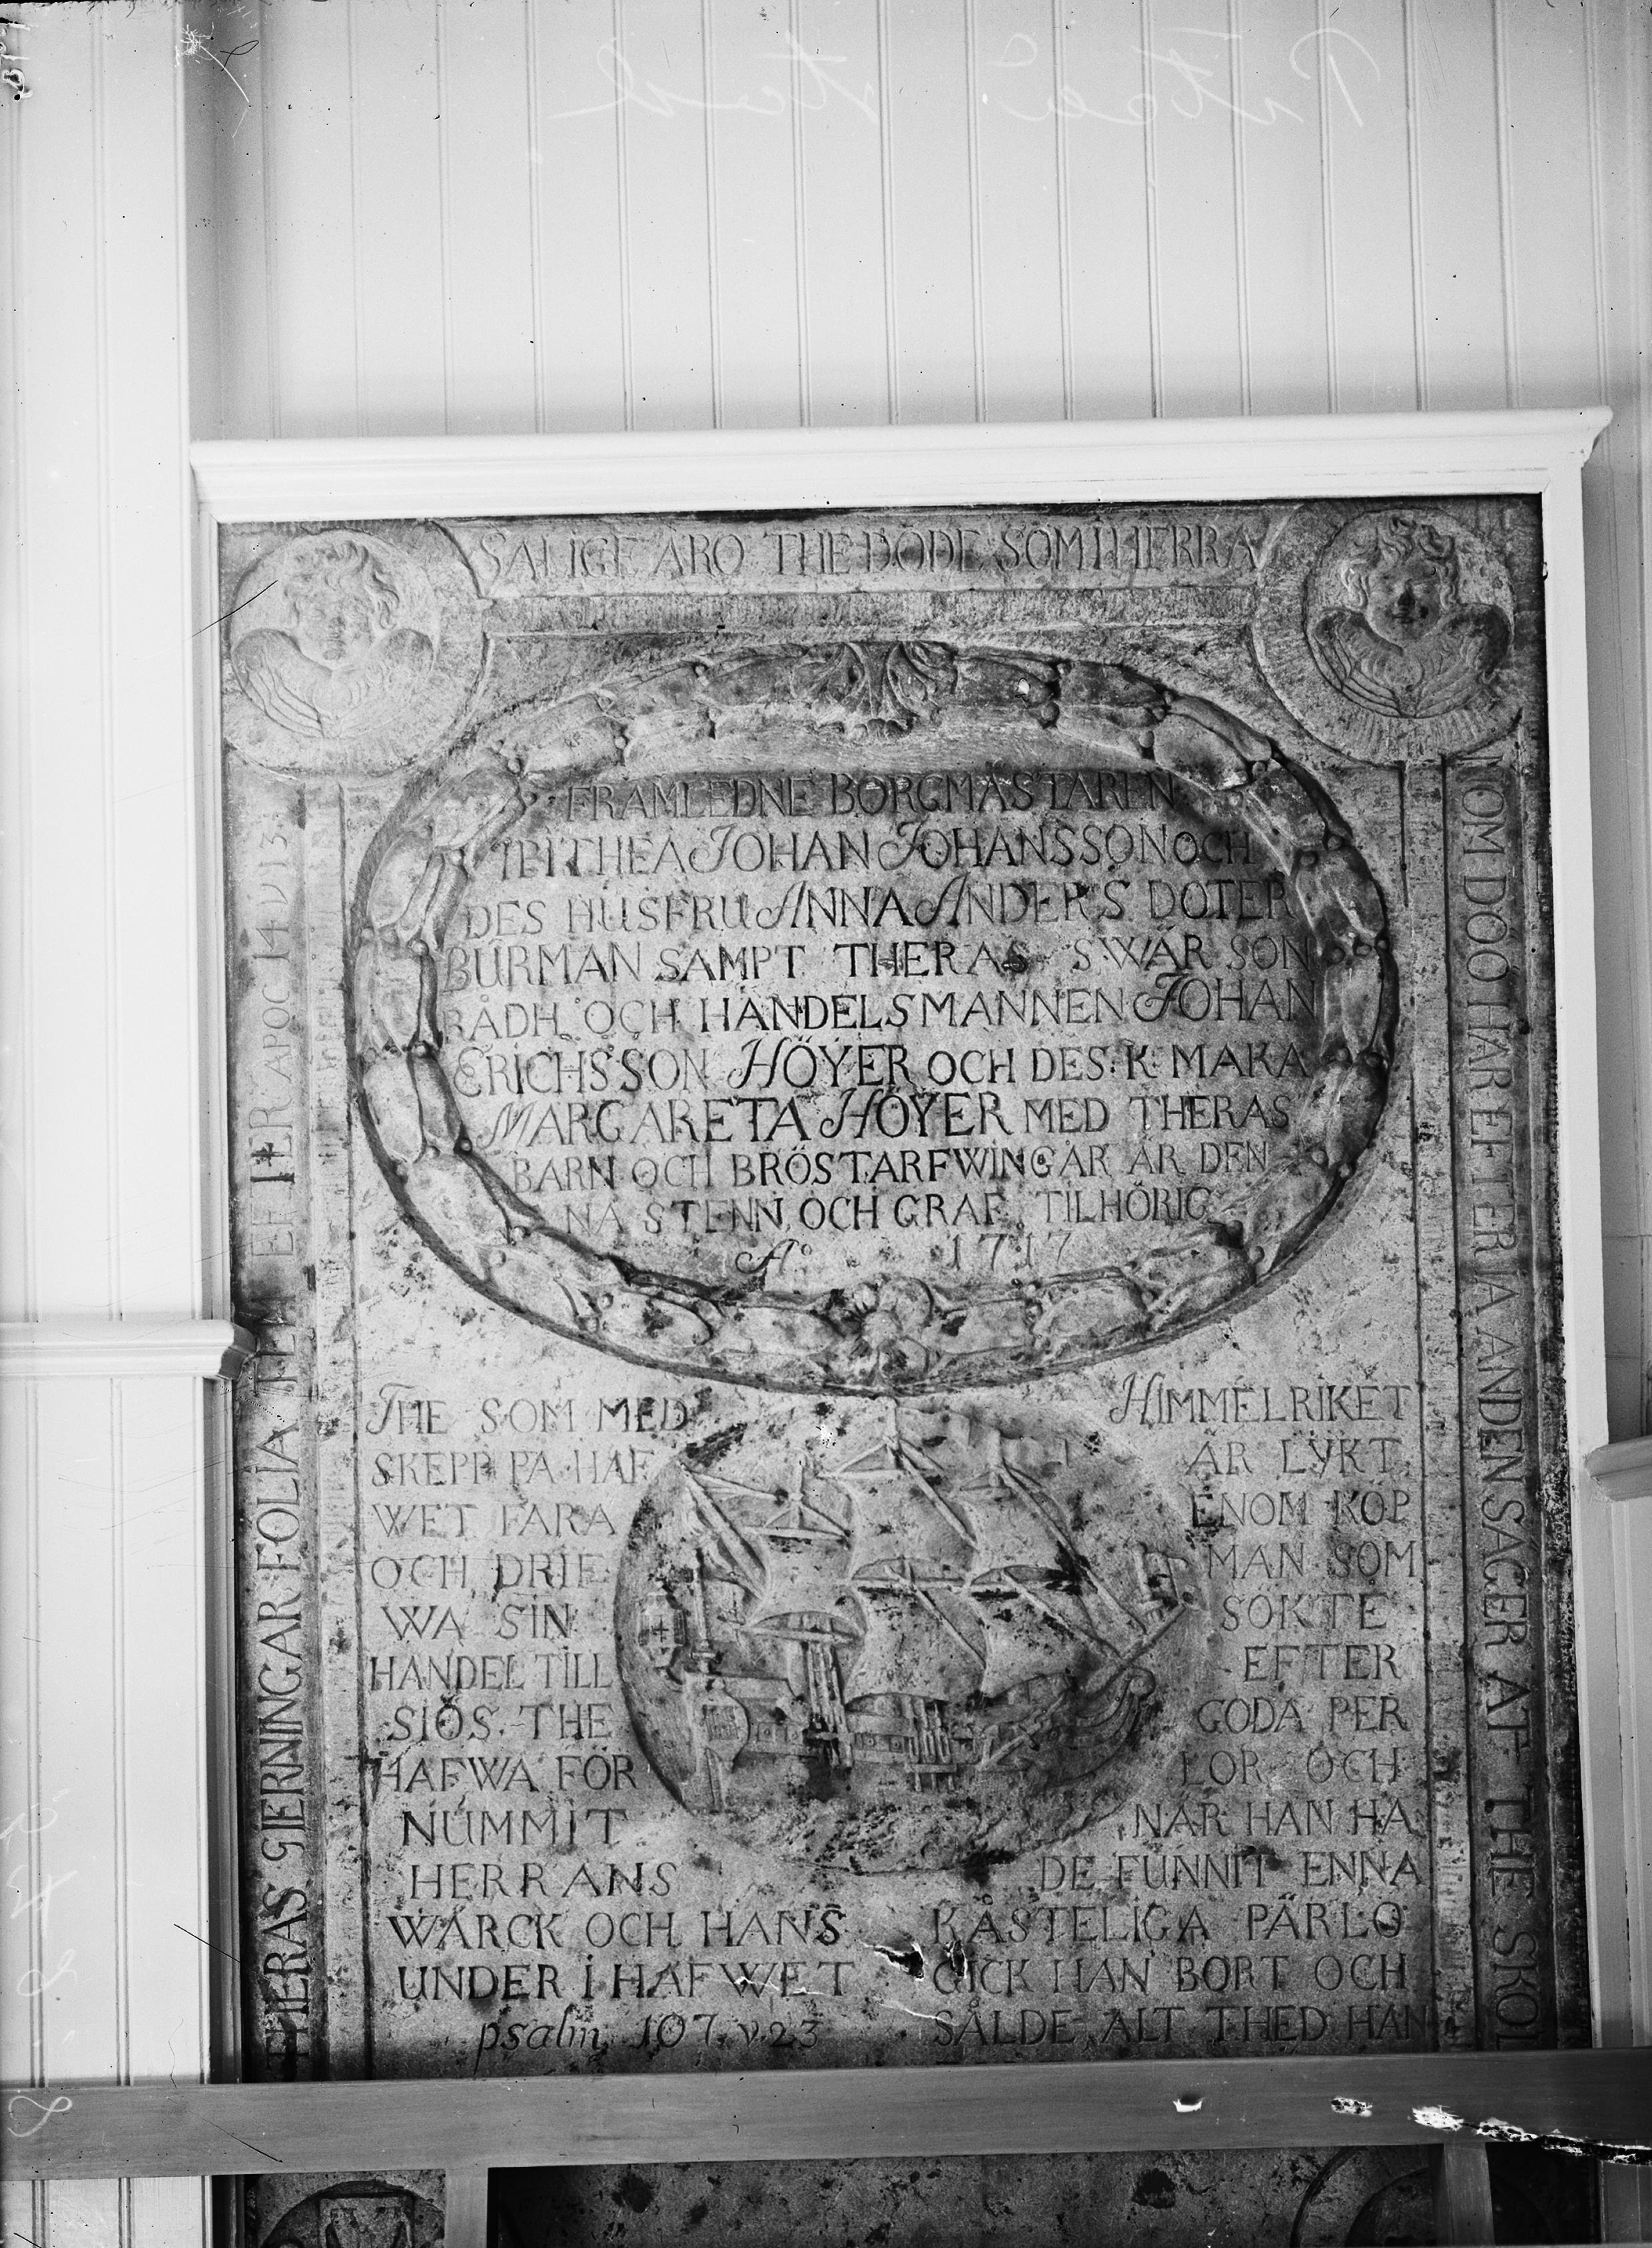 SALIGE ARO THE DÖDE SOM I HERRA
NOM DÖÖ HAR EFTER IA ANDEN SÄGER AT THE SKOL
THERAS GIERNINGAR FÖLIA TEM EFTER APOC 14 V 13
FRAMLEDNE BORGMÄSTAREN
I PITHEA JOHAN JOHANSSON OCH
DES HUSFRU ANNA ANDERS DOTER
BURMAN SAMPT THERAS SWÄR SON
RÅDH OCH HANDELSMANNEN JOHAN
ERICHSSON HÖYER OCH DES K MAKA
MARGARETA HÖYER MED THERAS
BARN OCH BRÖSTARFWINGAR ÄR DEN
NA STENN OCH GRAF TILHÖRIG
A° 1717
THE SOM MED
SKEPP PÅ HAF
WET FARA
OCH DRIF
WA SIN
HANDEL TILL
SIÖS THE
HAFWA FÖR
NUMMIT
HERRANS
WÄRCK OCH HANS
UNDER I HAFWET
psalm 107 v 23
HIMMELRIKET
ÄR LYKT
ENOM KÖP
MAN SOM
SÖKTE
EFTER
GODA PER
LOR OCH
NÄR HAN HA
DE FUNNIT ENNA
KÅSTELIGA PÄRLO
GICK HAN BORT OCH
SÅLDE ALT THED HAN
Piteå stad